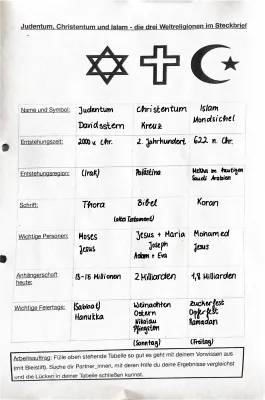 Judentum, Christentum und Islam - die drei Weltreligionen im Steckbrief
Name und Symbol: Judentum Christentum Islam
Davidsstern Kreuz Mondsichel
Entstehungszeit: 2000 v. Chr. 2. Jahrhundert 622 n. Chr.
Entstehungsregion: (Irak) Palästina Mekka im heutigen
Saudi Arabien
Schrift: Thora Bibel Koran
(altes Testament)
Wichtige Personen: Moses Jesus + Maria Mohamed
Jesus Joseph Jesus
Adam + Eva
Anhängerschaft heute: 13-15 Millionen 2 Milliarden 1,8 Milliarden
Wichtige Feiertage: (Sabbat) Weinachten Zuckerfest
Hanukka Ostern Opferfest
Nikolau Ramadan
Pfingsten
(Sonntag) (Freitag)
Arbeitsauftrag: Fülle oben stehende Tabelle so gut es geht mit deinem Vorwissen aus
(mit Bleistift). Suche dir Partner_innen, mit deren Hilfe du deine Ergebnisse vergleichst
und die Lücken in deiner Tabelle schließen kannst.